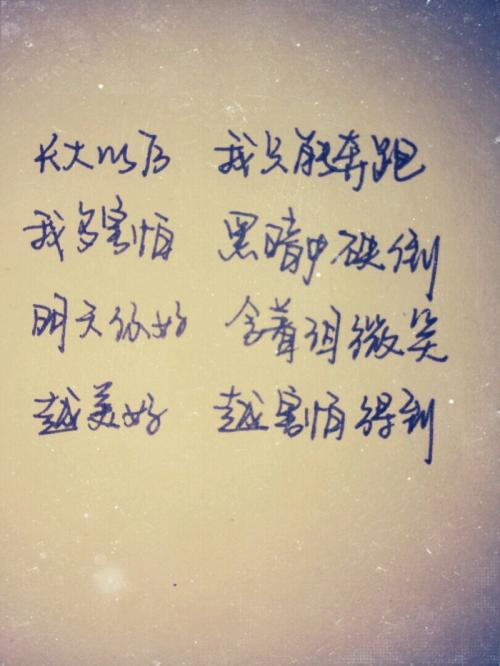 长大以后 我只能奔跑
我多害怕 黑暗中跌倒
明天你好 含着泪微笑
越美好 越害怕得到